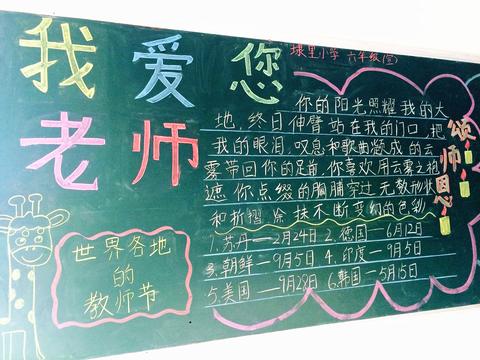 我爱您
老师
里小学 六年级
你的阳光照耀我的大
地,终日伸臂站在我的门口,把
我的眼泪,叹息和歌曲变成的云
雾带回你的足前,你喜欢用云雾之袍
遮你点缀的胸脯穿过无数形状
和折摺 抹不断变幻的色彩
颂师恩
世界各地
的
教师节
1.苏丹—2月24日 2.德国—6月12日
3.朝鲜—9月5日 4.印度—9月5日
5.美国—9月28日 6.韩国—5月15日